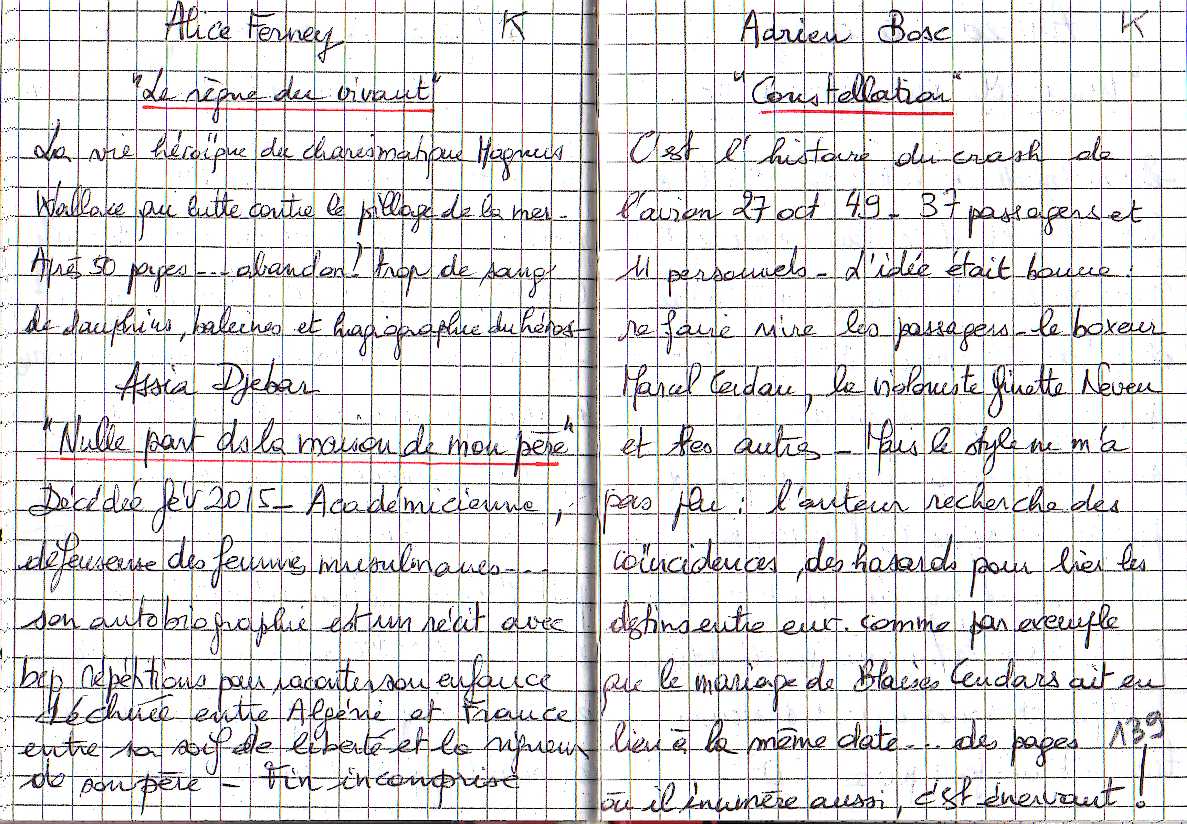 Alice Ferney K
"Le règne du vivant"
La vie héroïque du charismatique Magnus
Wallace qui lutte contre le pillage de la mer -
Après 50 pages --- abandon! trop de sang
de dauphins, baleines et hagiographie du héros -
Assia Djebar
"Nulle part ds la maison de mon père"
Décédée fév 2015 - Académicienne,
défenseuse des femmes musulmanes ---
son autobiographie est un récit avec
bcp répétitions pour raconter son enfance
déchirée entre Algérie et France
entre sa soif de liberté et la rigueur
de son père - Fin incomprise
Adrien Bosc K
"Constellation"
C'est l'histoire du crash de
l'avion 27 oct 49 - 37 passagers et
11 personnels - L'idée était bonne :
refaire vivre les passagers - le boxeur
Marcel Cerdan, la violoniste Ginette Neveu
et les autres - Mais le style ne m'a
pas plu : l'auteur recherche des
coïncidences, des hasards pour lier les
destins entre eux. comme par exemple
que le mariage de Blaises Cendars ait eu
lieu à la même date --- des pages 139
où il énumère aussi, c'est énervant!